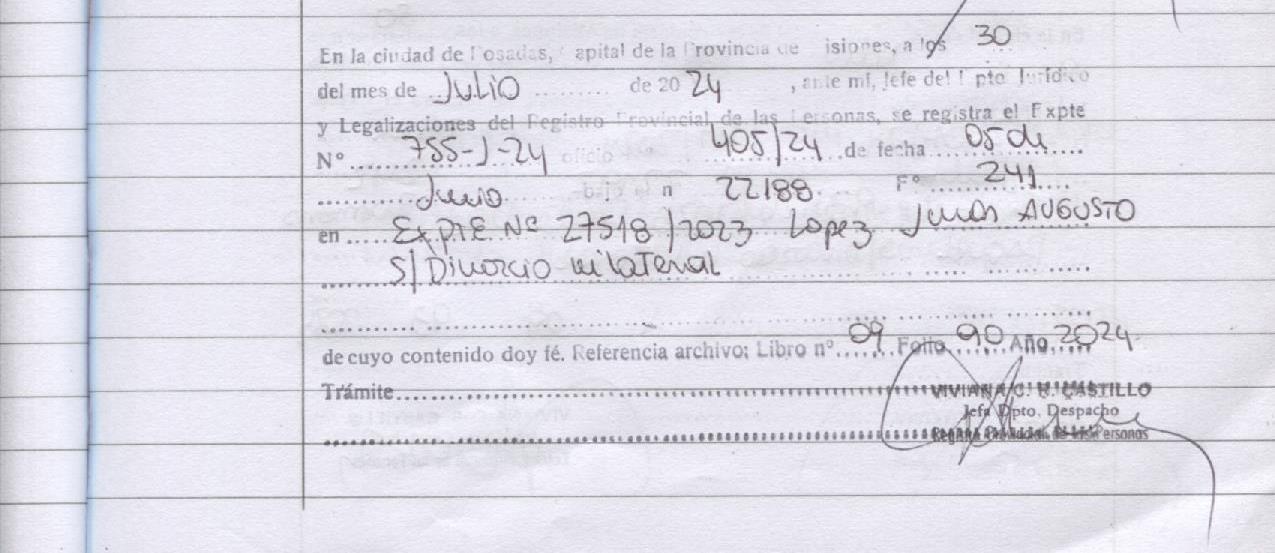 En la ciudad de Posadas, Capital de la Provincia de Misiones, a los 30
del mes de Julio de 2024, ante mí, Jefe del Dpto Jurídico
y Legalizaciones del Registro Provincial de las Personas, se registra el Expte
Nº 755-J-24 oficio 405/24 de fecha 05 de
Junio bajo n 22188 Fº 241
en Expte Nº 27518/2023 Lopez Juan AUGUSTO
S/ Divorcio unilateral
de cuyo contenido doy fé. Referencia archivo: Libro nº 09 Folio 90 Año 2024
Trámite
VIVIANA C. CASTILLO
Jefa Dpto. Despacho
Registro Provincial de las Personas